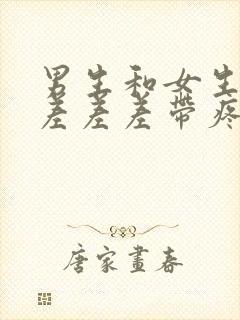 男生和女生
差差差带疼
唐家畫春